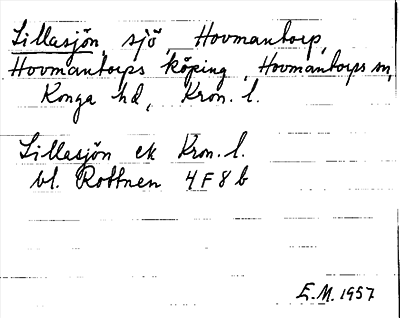 Lillasjön, sjö, Hovmantorp,
Hovmantorps köping, Hovmantorps sn,
Konga hd, Kron. l.
Lillasjön ek Kron. l.
bl. Rottnen 4F8b
E.M. 1957